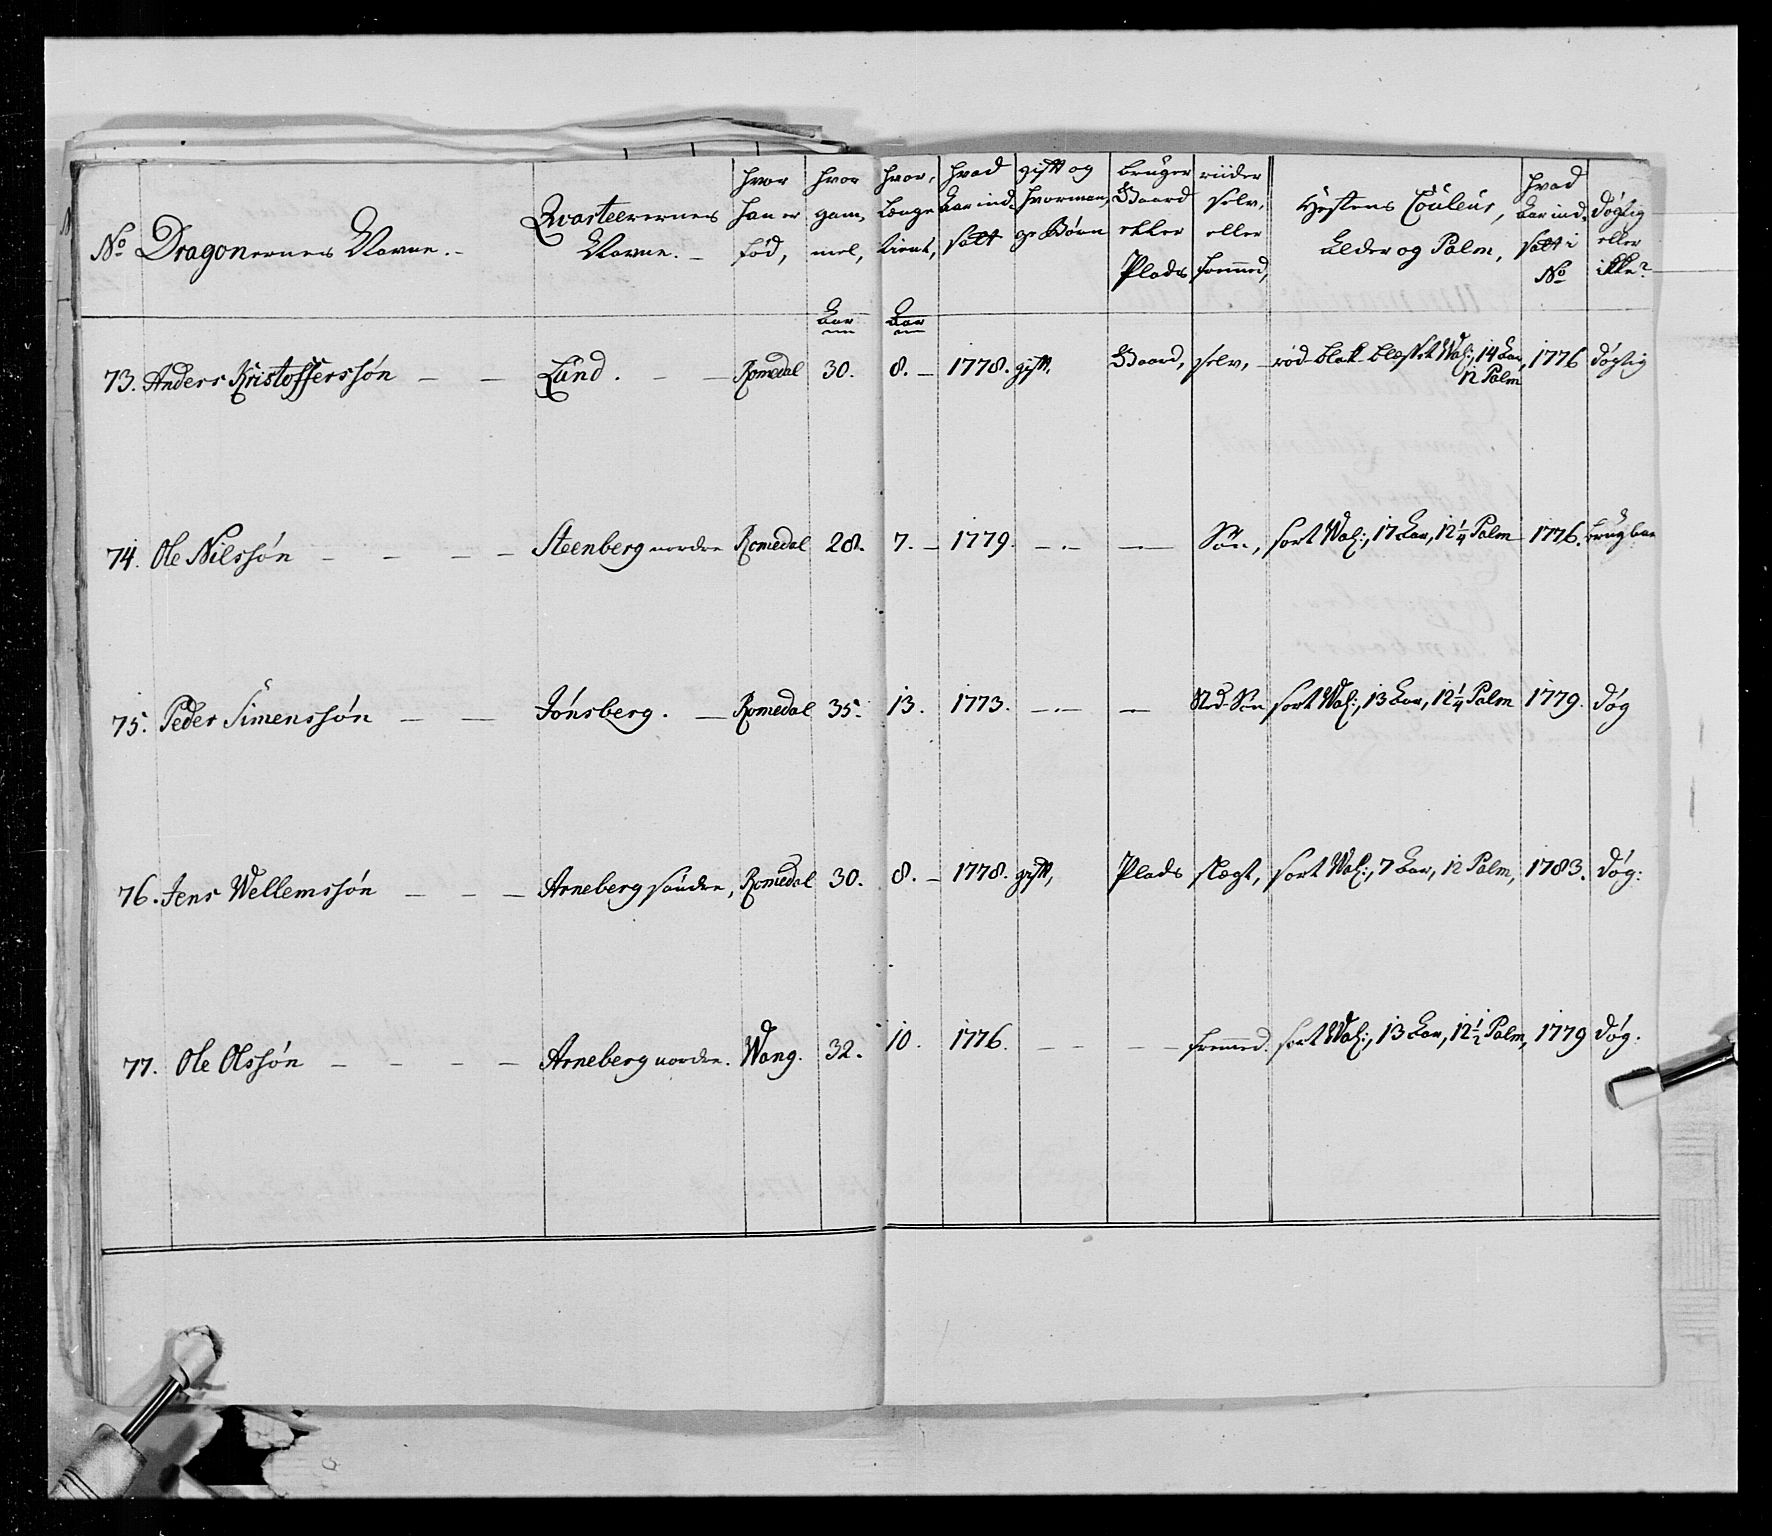 No Dragonernes Navne.
Qvarteerernes Navne.
hvor han er fød,
hvor gammel,
hvor længe tient,
hvad Aar indsatt
gift og hvormange Børn
bruger Gaard eller Plads
riider selv, eller fremmed,
Hæstens Couleur, Alder og Palm,
hvad Aar indsatt i No
døgtig eller ikke?
Aar Aar
73. Anders Kristofferssøn — — Lund. — — Romedal 30. 8. — 1778. gift, Gaard, selv, — rød-blak-blesset Val:, 14 Aar, 12 Palm 1776 døgtig
74. Ole Nilssøn — — — — Steenberg nordre Romedal 28. 7. — 1779. —.— — Søn, sort Val:, 17 Aar, 12 1/4 Palm 1776. brugbar
75. Peder Simenssøn — — Jónsberg. — Romedal 35. 13. 1773. —.— — Sted-Søn sort Val:, 13 Aar, 12 1/4 Palm 1779. døg
76. Jens Wellemssøn — — — Arneberg søndre, Romedal 30. 8. — 1778. gift, Plads slægt, sort Val:, 7 Aar, 12 Palm, 1783. døg:
77. Ole Olssøn — — — — Arneberg nordre. Wang. 32. 10. 1776. — — — — fremmed. sort Val:, 13 Aar, 12 1/2 Palm, 1779 døg.